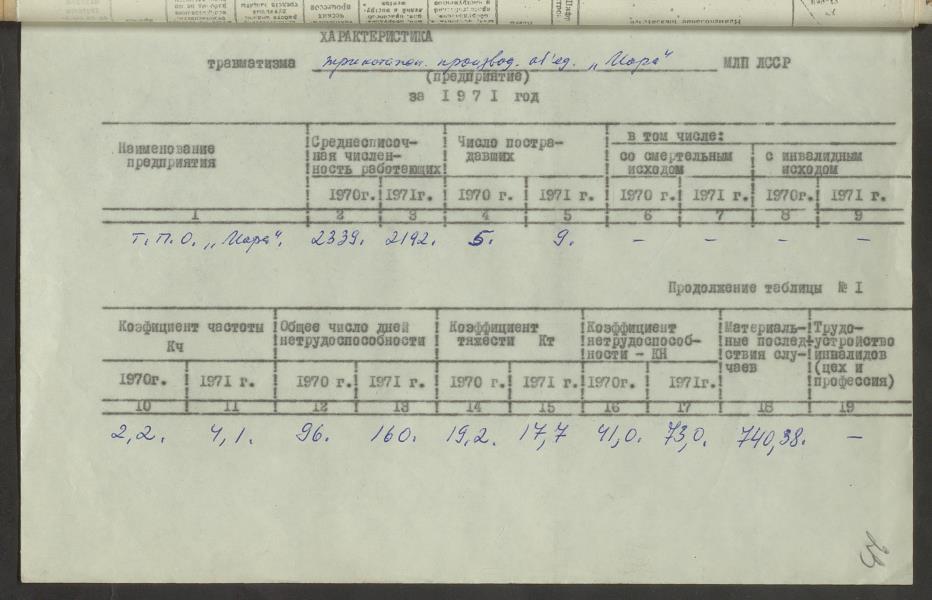 ХАРАКТЕРИСТИКА
травматизма трикотажн. производ. об'ед. „Мара" МЛП ЛССР
(предприятие)
за 1971 год
Наименование предприятия
Среднесписоч-
ная числен-
ность работающих
Число постра-
давших
в том числе:
со смертельным
исходом
с инвалидным
исходом
1970г. 1971г. 1970 г. 1971 г. 1970 г. 1971 г. 1970г. 1971 г.
1 2 3 4 5 6 7 8 9
Т.П.О. „Мара". 2339. 2192. 5. 9. – – – –
Продолжение таблицы № I
Коэфициент частоты
Кч
Общее число дней
нетрудоспособности
Коэффициент
тяжести Кт
Коэффициент
нетрудоспособ-
ности - КН
Материаль-
ные послед-
ствия слу-
чаев
Трудо-
устройство
инвалидов
(цех и
профессия)
1970г. 1971 г. 1970 г. 1971 г. 1970 г. 1971 г. 1970г. 1971г.
10 11 12 13 14 15 16 17 18 19
2,2. 4,1. 96. 160. 19,2. 17,7 41,0. 73,0. 740,38. –